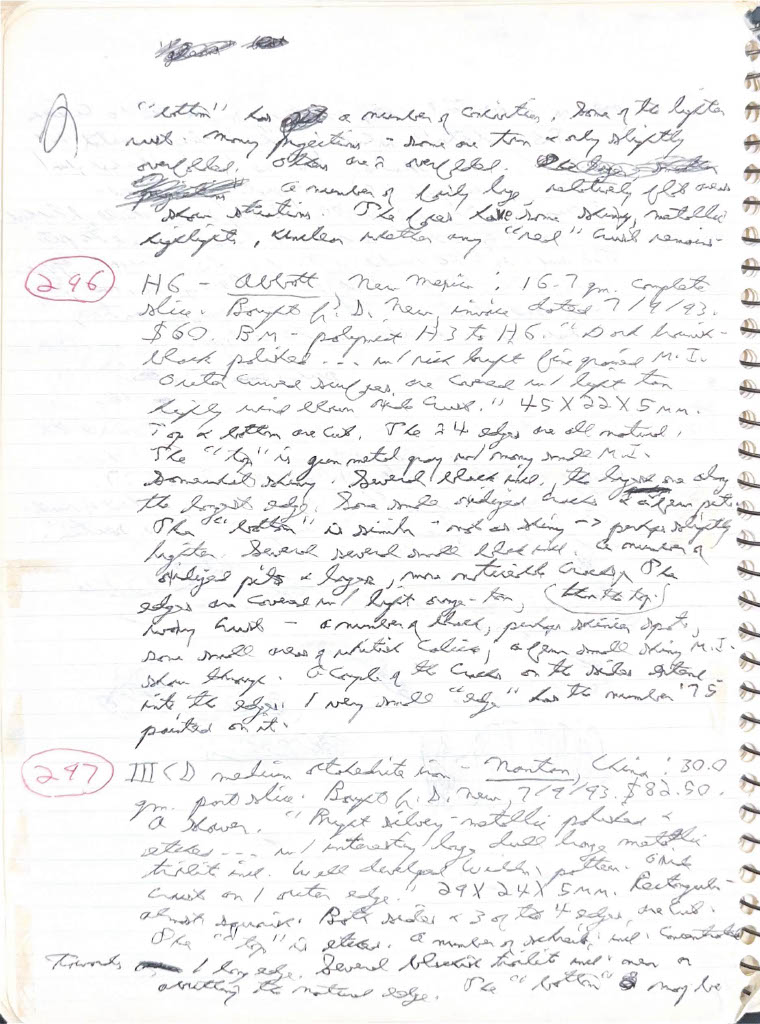 "bottom" has a number of concavities. Some of the lighter
rust. Many projections - some are torn & only slightly
overfolded. Others are overfolded.
a number of fairly large, relatively flat areas
show striations. The faces have some shiny, metallic
highlights, unclear whether any "real" crust remains.
296 H6 - Abbott New Mexico: 16.7 gm. complete
slice. Bought fr. D. New, invoice dated 7/9/93.
$60. BM - polymict H3 to H6. "Dark brownish-
black polished --- w/ rich bright fine grained M.I.
Outer curved surfaces are covered w/ light tan
highly wind blown oxide crust." 45 X 22 X 5 mm.
Top & bottom are cut. The 4 edges are all natural.
The "top" is gun metal gray w/ many small M.I.
Somewhat shiny. Several black incl., the largest one along
the longest edge. Some small oxidized cracks & a few pits.
The "bottom" is similar - not as shiny -> perhaps slightly
lighter. Several several small black incl. A number of
oxidized pits & larger, more noticeable cracks
than the top.
The
edges are covered w/ light orange-tan,
crust - a number of black, perhaps shinier spots,
some small areas of whitish caliche, a few small shiny M.I.
show through. A couple of the cracks on the sides extend
into the edges. 1 very small "edge" has the number 75
painted on it.
297 III CD medium octahedrite iron - Nantan, China: 30.0
gm. part slice. Bought fr. D. New, 7/9/93. $82.50.
A shower. "Bright silvery-metallic polished &
etched --- w/ interesting large dull bronze metallic
troilite incl. Well developed Widm. pattern. Oxide
crust on 1 outer edge." 29 X 24 X 5 mm. Rectangular -
almost squarish. Both sides & 3 of the 4 edges are cut.
The "top" is etched. A number of schreib. incl. concentrated
Towards 1 long edge. Several blackish troilite incl. near or
abutting the natural edge. The "bottom" may be